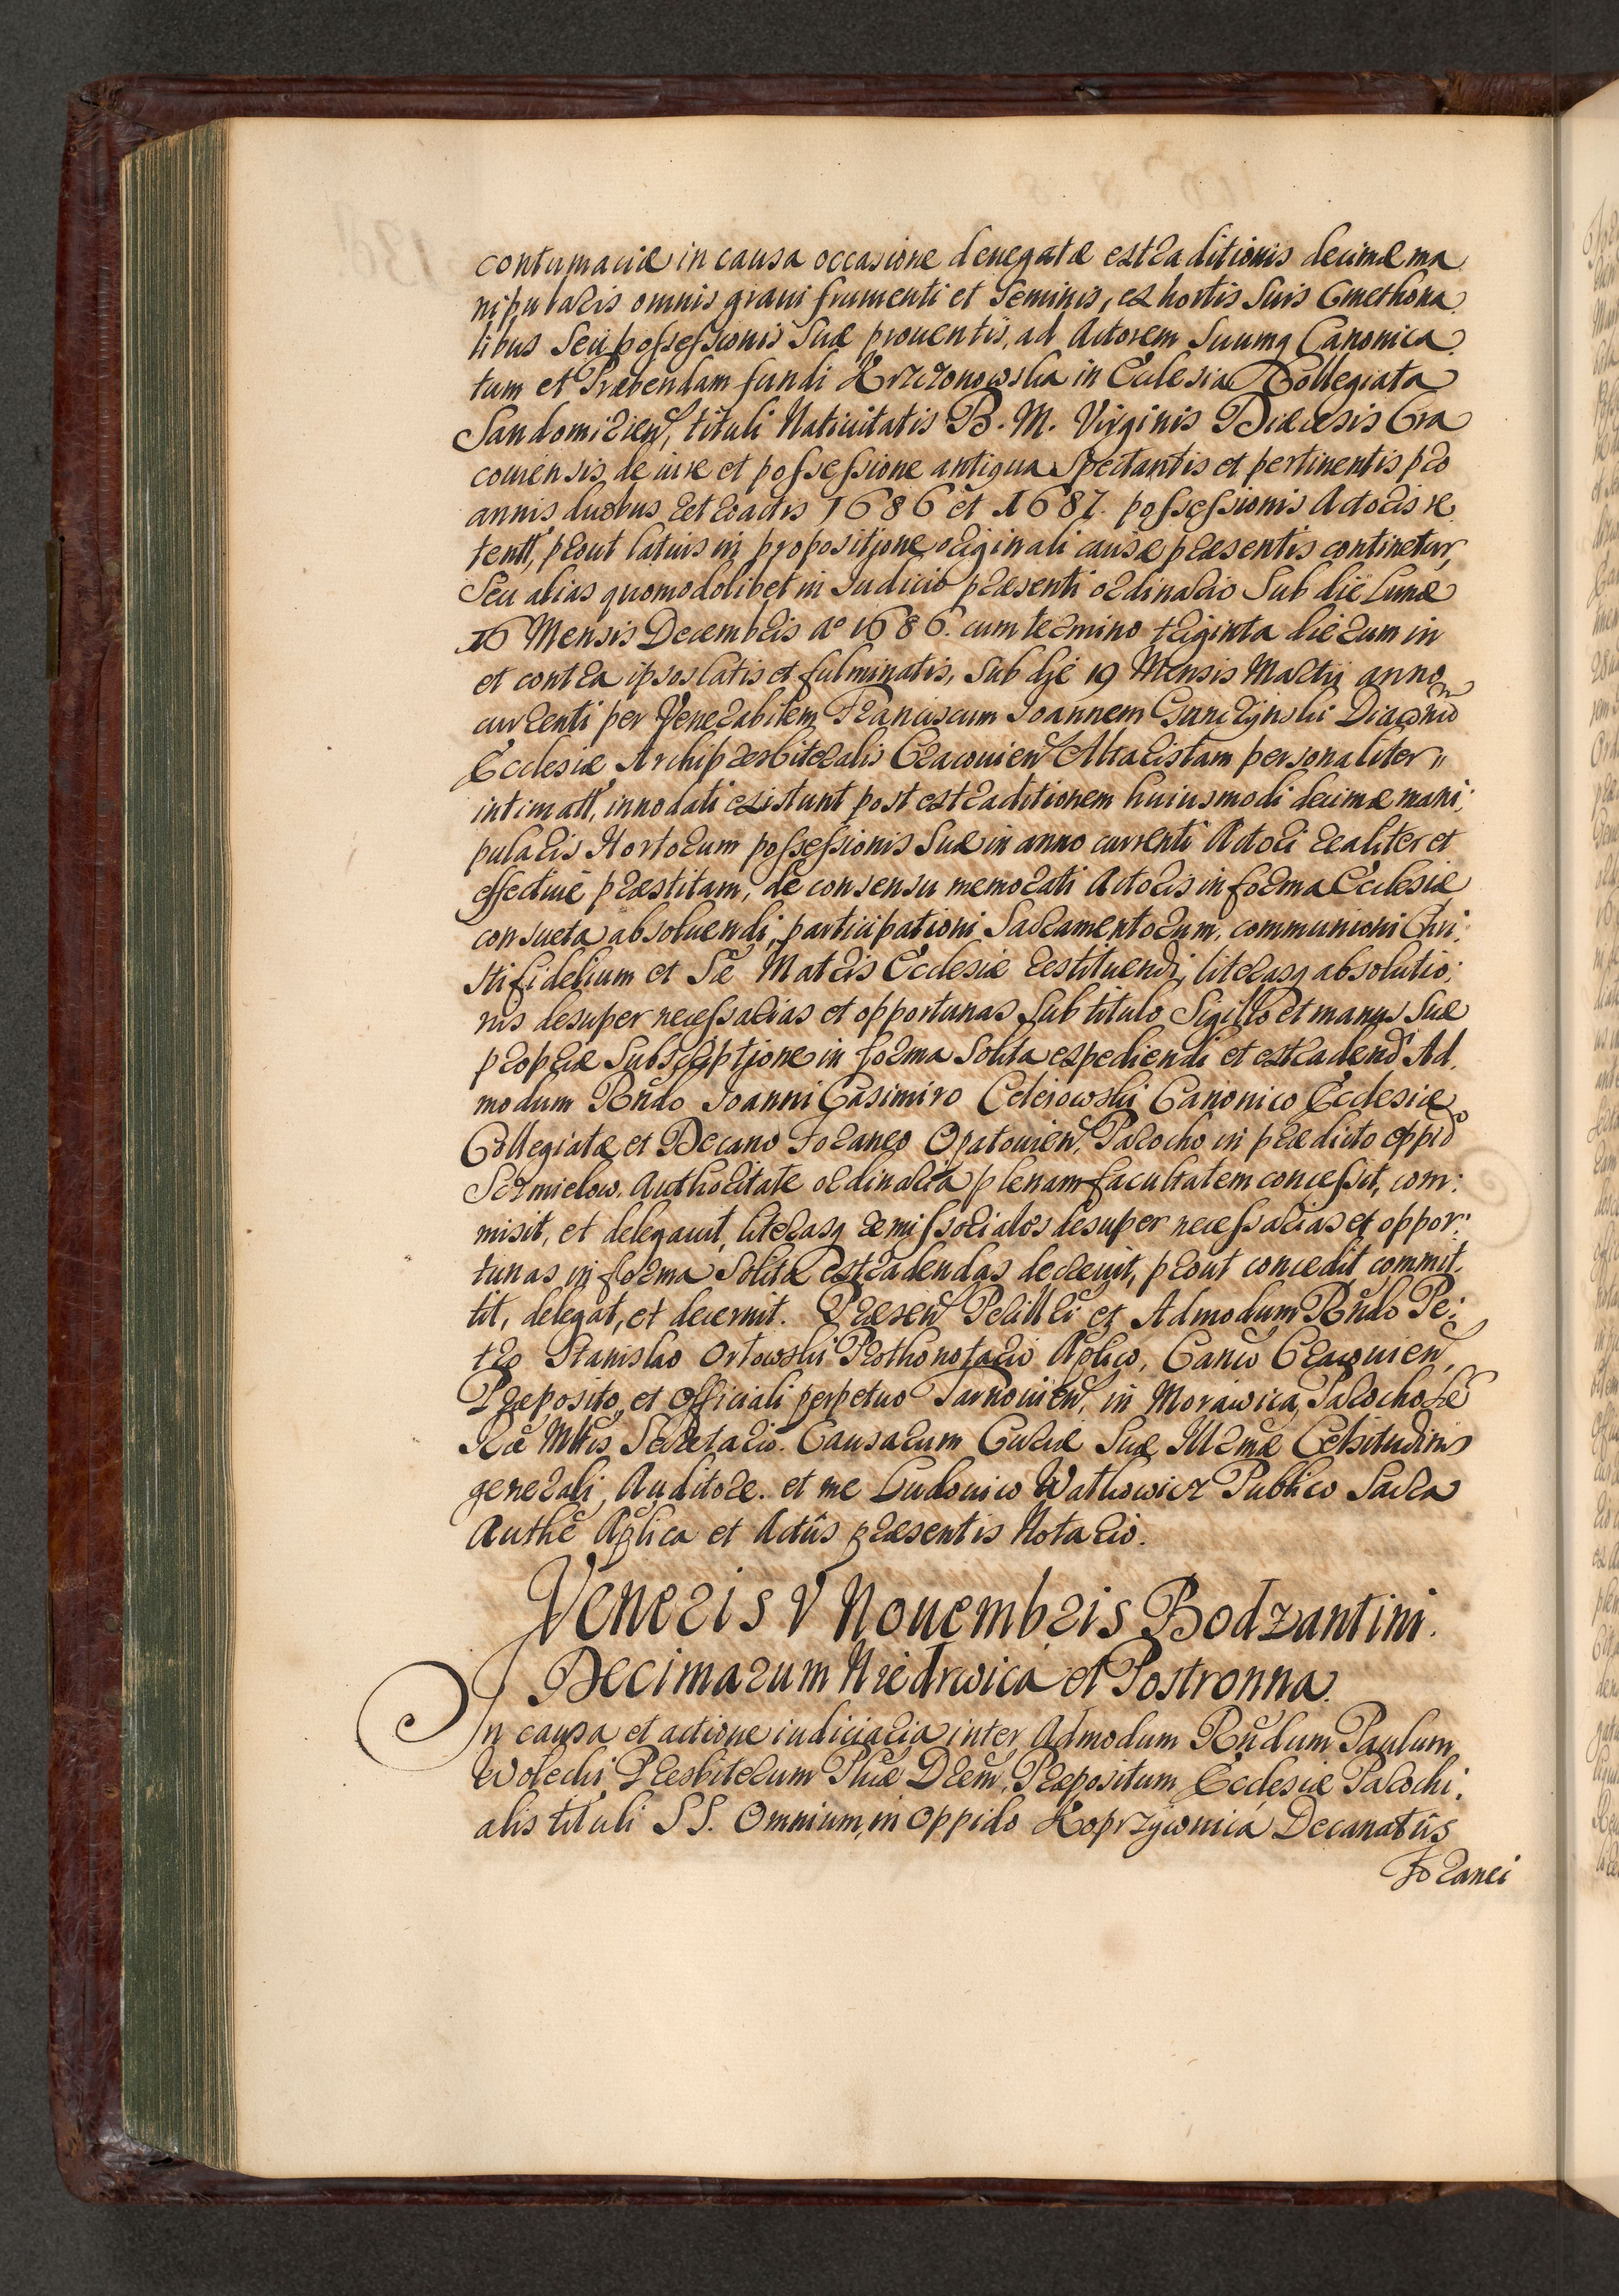 contumaciæ in causa occasione denegatæ extraditionis decimæ ma
nipularis omnis grani frumenti et seminis, ex hortis suis Cmethona
libus seu possessionis suæ prouentis, ad Actorem suumq Canonica
tum et Præbendam fundi Krzczonowska in Ecclesia Collegiata
Sandomirien, tituli Natiuitatis B. M. Virginis Diæcesis Cra
couiensis de iure et possessione antiqua spectantis et pertinentis pro
annis duobus retroactis 1686 et 1687. possessionis Actoris re
tent, prout latius in propositione originali causæ præsentis continetur,
Seu alias quomodolibet in Iudicio præsenti ordinario sub die Lunæ
16 Mensis Decembris Ao 1686. cum termino triginta dierum in
et contra ipsos latis et fulminatis, sub die 19 Mensis Martii anno
currenti per Venerabilem Franciscum Joannem Diaconu
Ecclesiæ Archipresbiteralis Cracouien Altaristam personaliter
intimatt, innodati existunt post extraditionem huiusmodi decimæ mani:
pularis Hortorum possessionis suæ in anno currenti Actori realiter et
effectiuè præstitam, de consensu memorati Actoris in forma Ecclesiæ
consueta absoluendi, participationi Sacramentorum, communioni Chri:
stifidelium et Sæ Matris Ecclesiæ restituendi, literasq absolutio:
nis desuper necessarias et opportunas sub titulo Sigillo et manus suæ
propriæ subscriptione in forma solita expediendi et extradend Ad
modum Rndo Joanni Casimiro Celejowski Canonico Ecclesiæ
Collegiatæ et Decano Foraneo Opatouien, Parocho in prædicto oppido
Szmielow. Authoritate ordinaria plenam facultatem concessit, com:
misit, et delegauit, literasq remissoriales desuper necessarias et oppor:
tunas in forma solita extradendas decreuit, prout concedit commit
tit, delegat, et decernit. Præsen Perillri et Admodum Rndo Pe:
tro Stanislao Orłowski Prothonotario Aplico, Canco Cracouien,
Præposito, et Officiali perpetuo Tarnouien, in Morawica, Parocho Sæ
Ræ Mttis Secretario. Causarum Curiæ Suæ Illmæ Celsitudinis
generali, Auditore. et me Ludouico Watkowicz Publico Sacra
Authe Aplica et Actûs præsentis Notario.
Veneris V Nouembris Bodzantini.
Decimarum Niedrwica et Postronna.
In causa et actione iudiciaria inter Admodum Rndum Paulum
Presbiterum Phiæ Drem, Præpositum Ecclesiæ Parochi:
alis tituli SS. Omnium, in Oppido Koprzywnica Decanatûs
Foranei